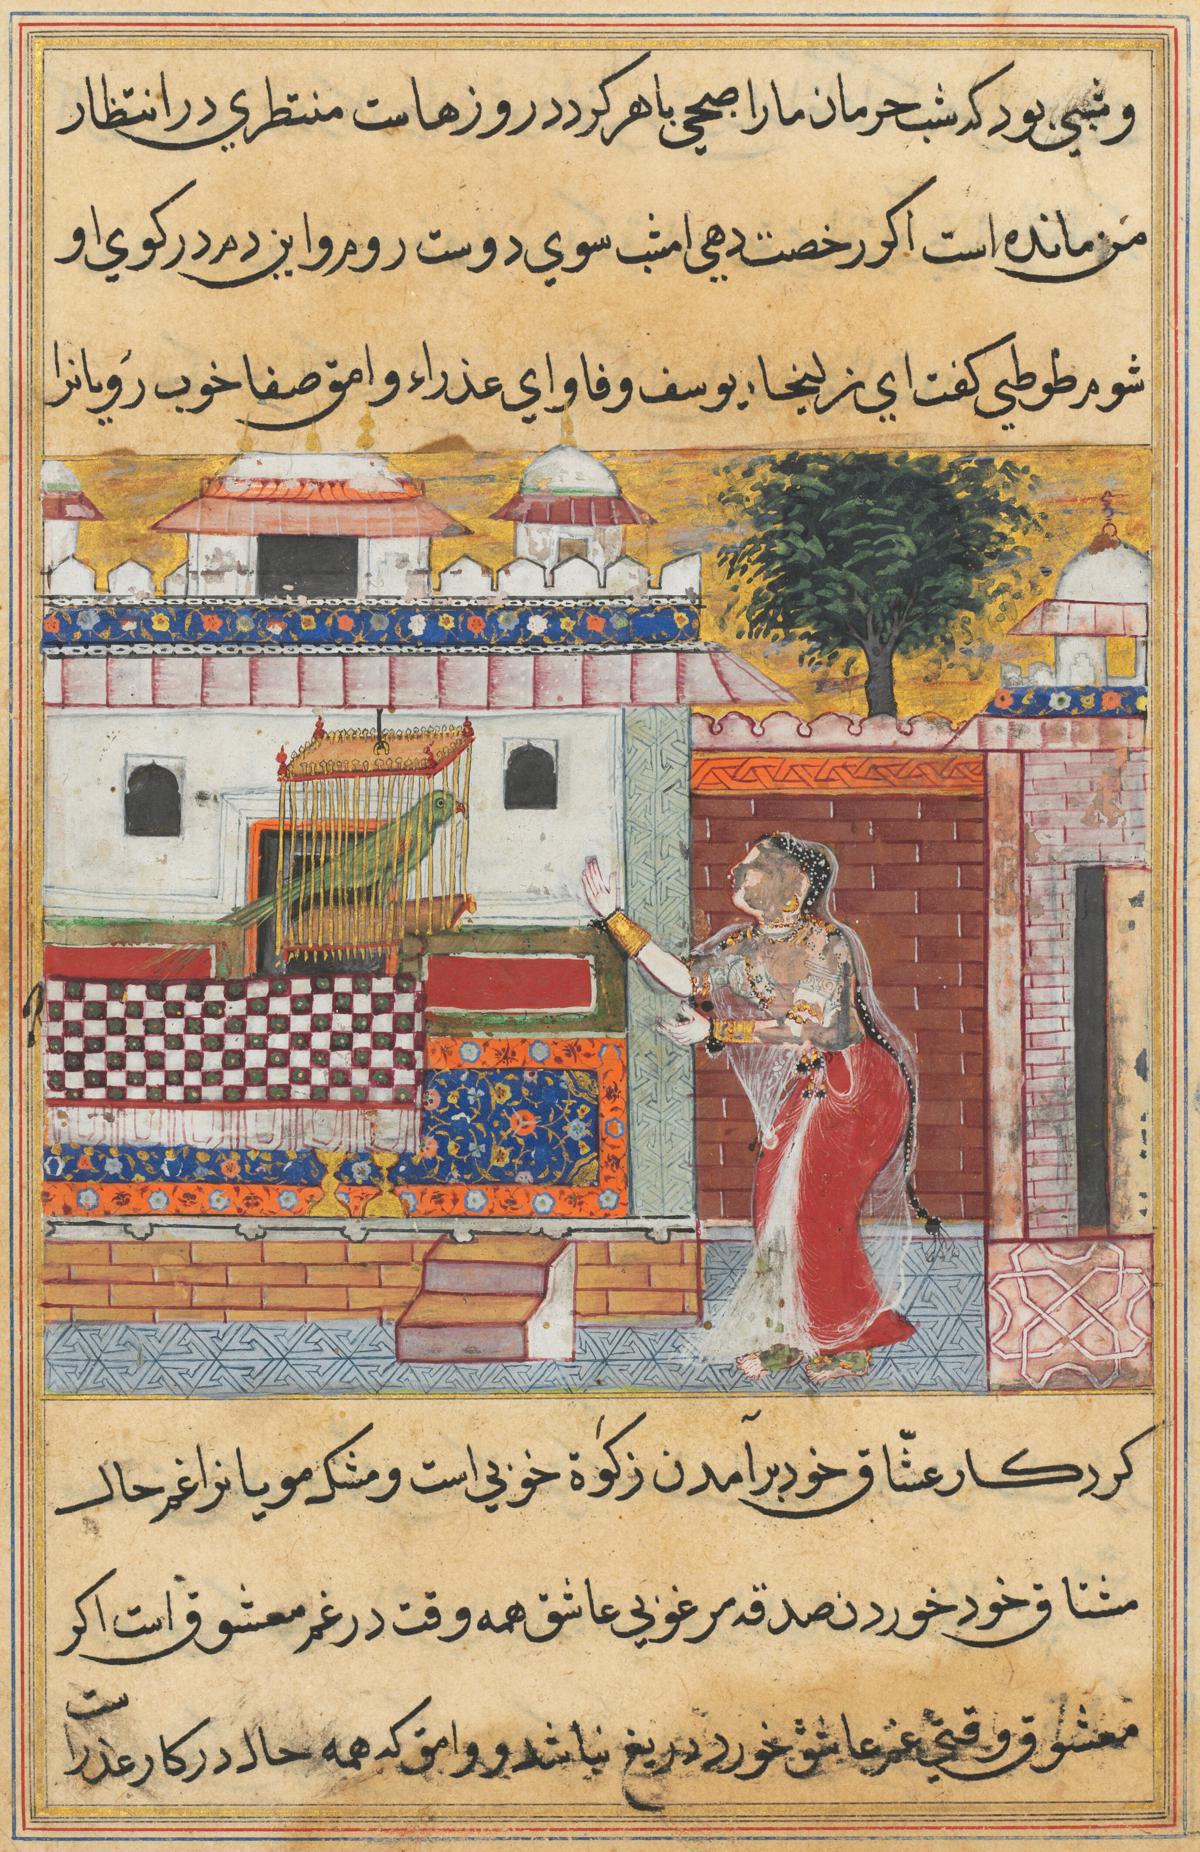 و شبی بود که شب حرمان ما را صبحی باهر کردد روزهاست منتظری در انتظار
من مانده است اکر رخصت دهی امشب سوی دوست روم و این دم در کوی او
شوم طوطی کفت ای زلیخاء یوسف وفا و ای عذراء وامق صفا خوب رویانرا
کرد کار عشّاق خود برآمدن زکوة خوبی است و مشک مویانرا غم حال
مشتاق خود خوردن صدقه مرغوبی عاشق همه وقت در غم معشوق است اکر
معشوق وقتی غم عاشق خورد دریغ نباشد و وامق که همه حال در کار عذرا
ست